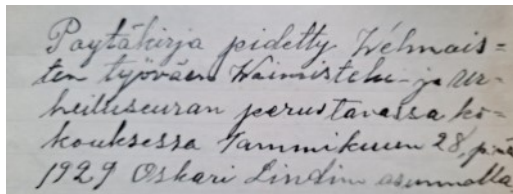 Paytäkirja pidetty Wélmais=
ten työväen Woimistelu- ja Ur-
heiluseuran perustavassa ko=
kouksessa Tammikuun 28, p:nä
1929 Oskari Lindin asunnolla